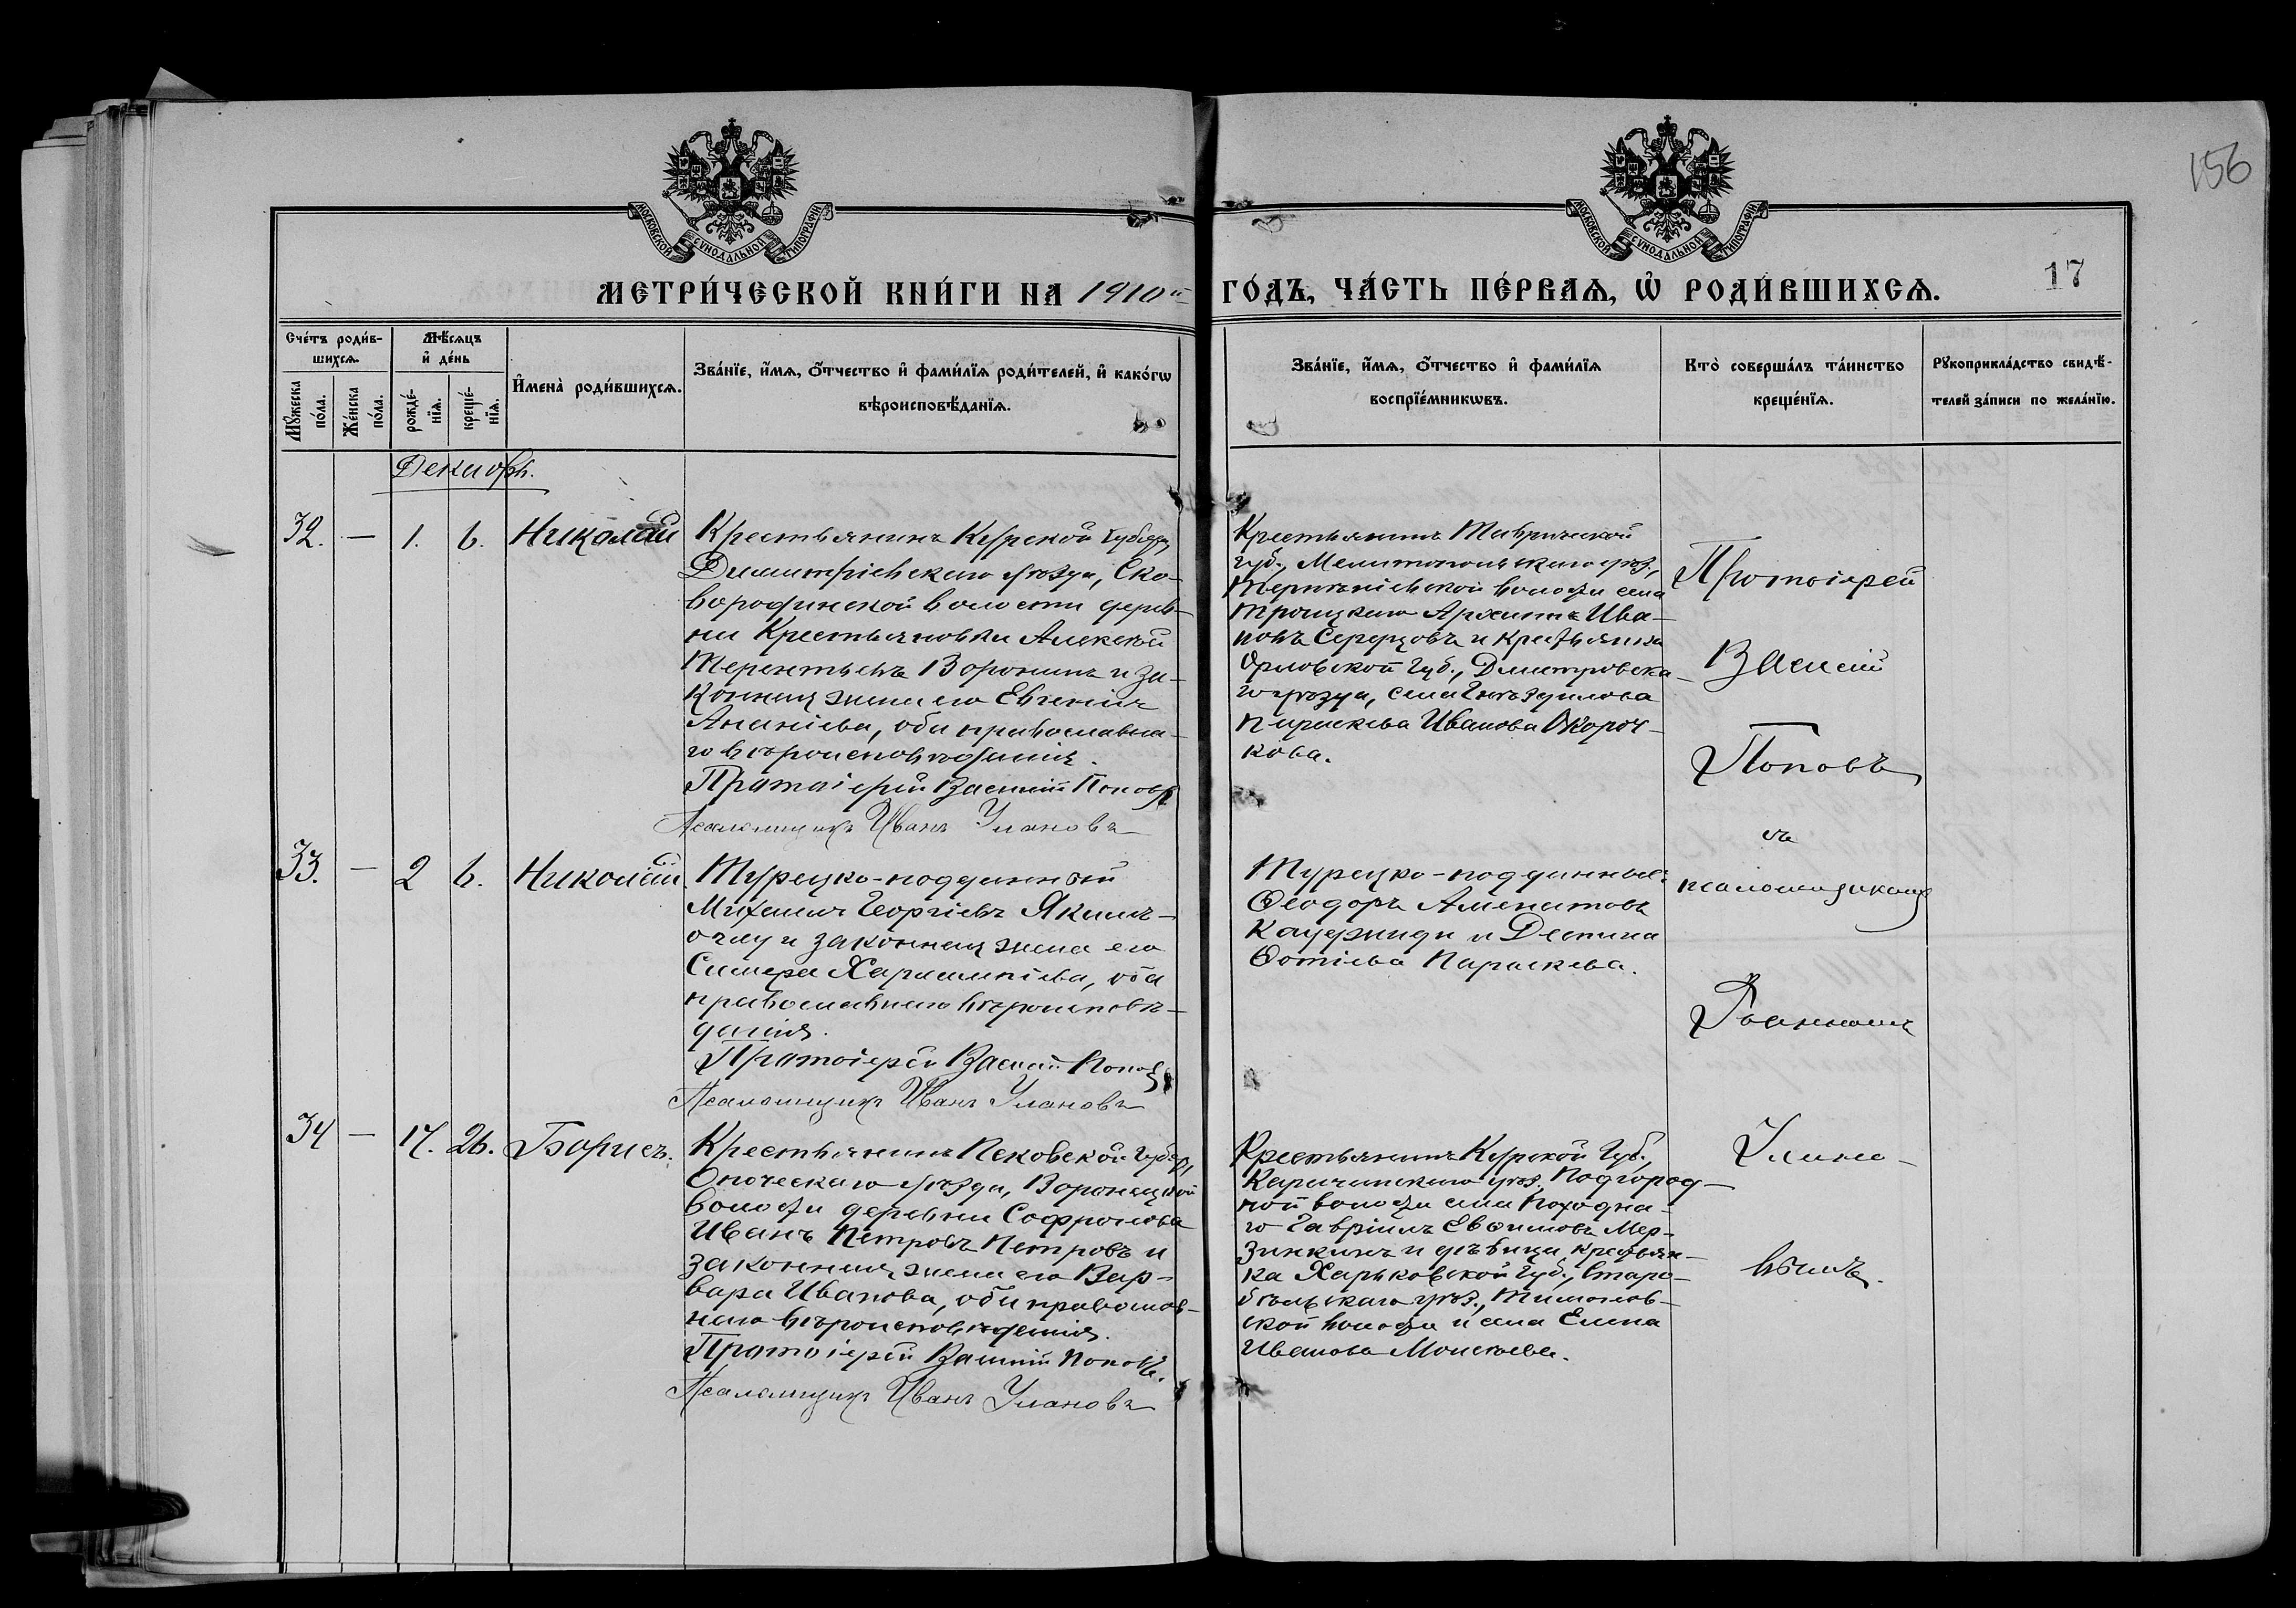 156
МОСКОВСКОЙ СѴНОДАЛЬНОЙ ТИПОГРАФІИ
МОСКОВСКОЙ СѴНОДАЛЬНОЙ ТИПОГРАФІИ
МЕТРИ́ЧЕСКОЙ КНИ́ГИ НА 1910й ГО́ДЪ, ЧА́СТЬ ПЕ́РВАЯ, Ѿ РОДИ́ВШИХСЯ.
17
Сче́тъ роди́в-
шихся.
Мѣ́сяцъ
и҆ де́нь
Мꙋ́жеска по́ла.
Же́нска по́ла.
рожде́-
нїя.
креще́-
нїя.
И҆мена̀ роди́вшихся.
Зва́нїе, и҆́мя, ѻ҆́тчество и҆ фами́лїя роди́телей, и҆ како́гѡ
вѣроисповѣ́данїя.
Зва́нїе, и҆́мя, ѻ҆́тчество и҆ фами́лїя
воспрїе́мникѡвъ.
Кто̀ соверша́лъ та́инство
креще́нїя.
Рꙋкоприкла́дство свидѣ́-
телей за́писи по жела́нїю.
Декабрь.
32. — 1. 6. Николай
Крестьянинъ Курской губерн,
Димитріевскаго уѣзда, Ско-
вородинской волости дерев-
ни Крестьяновки Алексѣй
Терентьевъ Воронинъ и за-
конная жена его Евгенія
Ананіева, оба православна-
го вѣроисповѣданія.
Протоіерей Василій Поповъ
Псаломщикъ Иванъ Улановъ
Крестьянинъ Таврической
губ., Мелитопольскаго уѣз.,
волости села
Троицкаго Архиппъ Ива-
новъ Середцовъ и крестьянка
Орловской губ., Дмитровска-
го уѣзда, села Гнѣздилова
Параскева Иванова Окороч-
кова.
33. — 2 6. Николай
Турецко-подданный
Михаилъ Георгіевъ Якимъ-
оглу и законная жена его
Симера Харалампіева, оба
православнаго вѣроисповѣ-
данія.
Протоіерей Василій Поповъ
Псаломщикъ Иванъ Улановъ
Турецко-подданные:
Ѳеодоръ
и Деспина
Фотіева Параскева.
34 — 17. 26. Борисъ.
Крестьянинъ Псковской губер,
Опоческаго уѣзда, Воронецкой
волости деревни Софронова
Иванъ Петровъ Петровъ и
законная жена его Вар-
вара Иванова, оба православ-
наго вѣроисповѣданія.
Протоіерей Василій Поповъ.
Псаломщикъ Иванъ Улановъ
Крестьянинъ Курской губ.,
Карачинскаго уѣз. Подгород-
ной волости села Походна-
го Гавріилъ Евфимовъ Мер-
зинкинъ и дѣвица крестьян-
ка Харьковской губ., Старо-
бѣльскаго уѣз., Тимонов-
ской волости и села Елена
Иванова Моисеева.
Протоіерей
Василій
Поповъ
съ
псаломщикомъ
Іоанномъ
Улано-
вымъ.